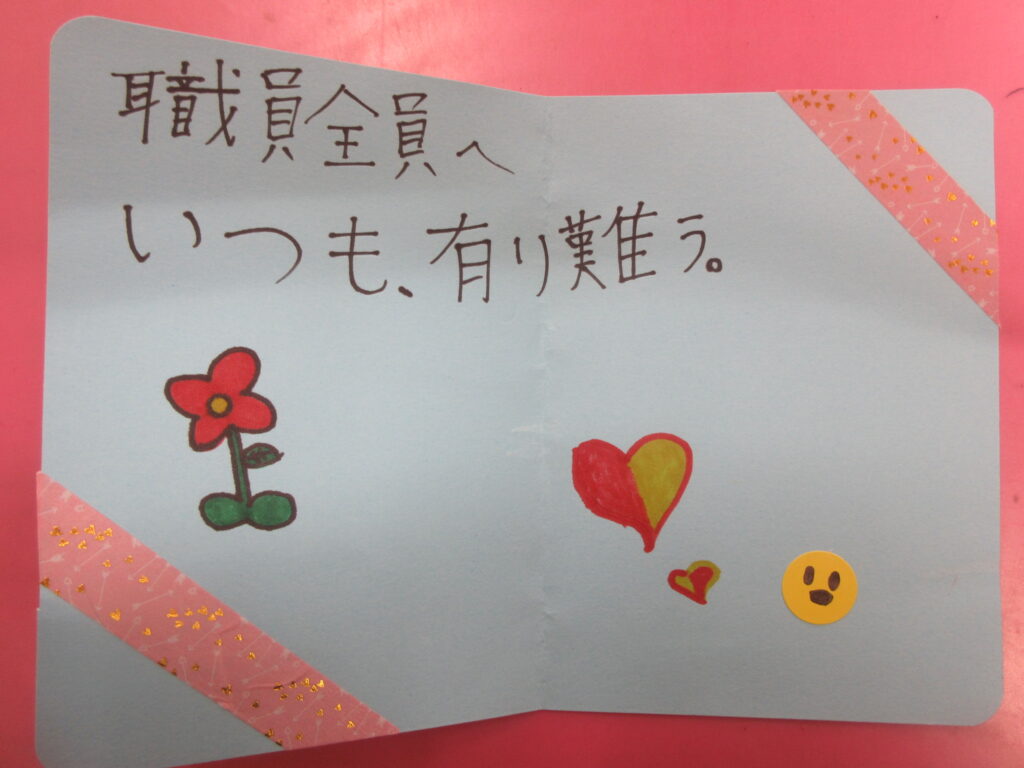 職員全員へ
いつも、有り難う。